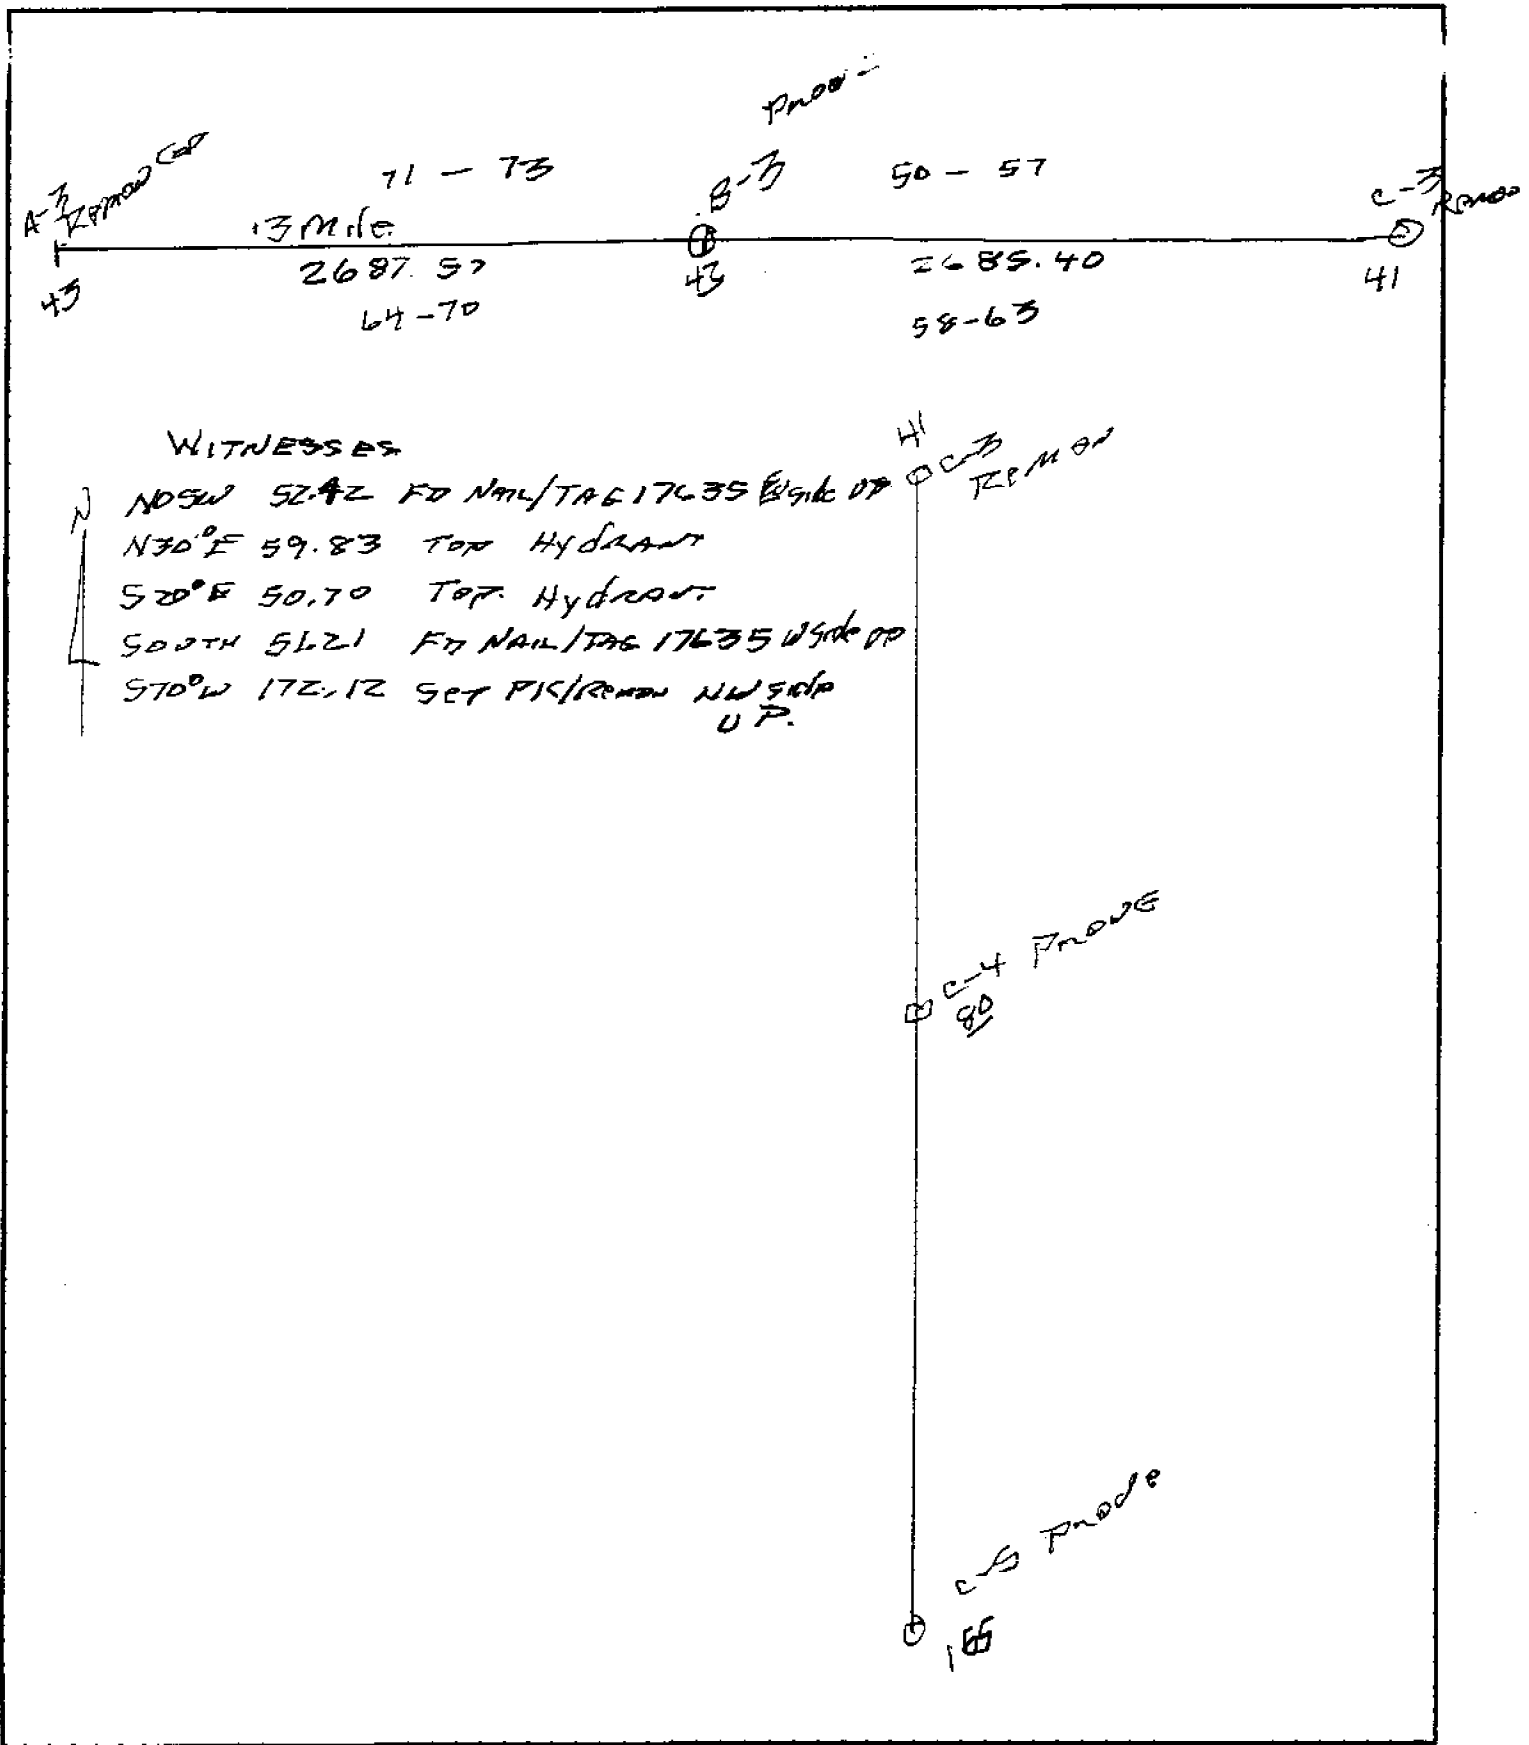 A-3
Remon Cap
71 - 73
B-3
50 - 57
C-3
Remon
13 Mile
2687.57
2685.40
43
43
41
64-70
58-63
WITNESSES
N05W 52.42 FD NAIL/TAG 17635 E side UP
N30°E 59.83 TOP Hydrant
S20°E 50.70 TOP Hydrant
SOUTH 51.21 FD NAIL/TAG 17635 W side PP
S70°W 172.12 SET PK/Remon NW side
U P.
N
41
C-3
REMON
C-4 Prove
80
C-5 Prode